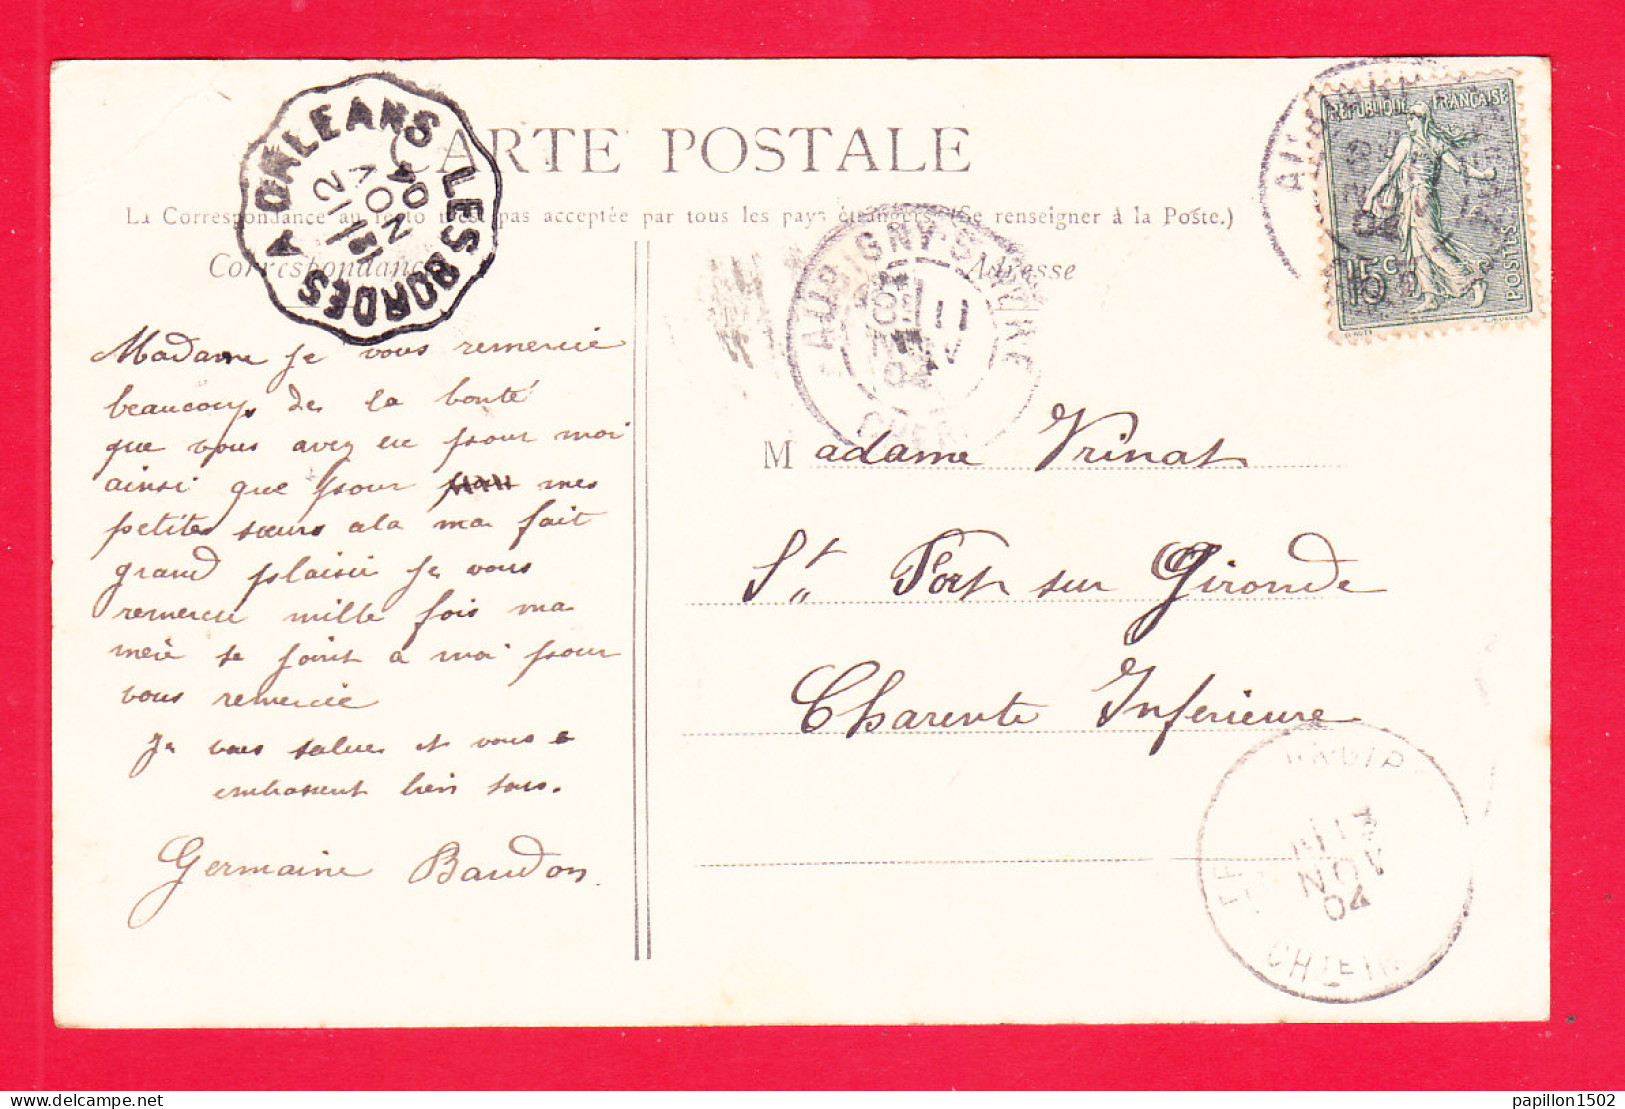 CARTE POSTALE
La Correspondance au recto n'est pas acceptée par tous les pays étrangers (Se renseigner à la Poste.)
Correspondance
Adresse
ORLEANS
LES BORDES A
12
NOV
04
REPUBLIQUE FRANÇAISE
15c
POSTES
AUBIGNY-S-NERE
CHER
11
NOV
04
Madame je vous remercie
beaucoup de la bonté
que vous avez eu pour moi
ainsi que pour mes
petites sœurs ala ma fait
grand plaisir je vous
remercie mille fois ma
mère se joint a moi pour
vous remercie
Je vous salues et vous
embassent bien tous.
Germaine Baudon.
Madame Vrinat
St Fort sur Gironde
Charente Inférieure
NOV
04
CHTE INF
papillon1502